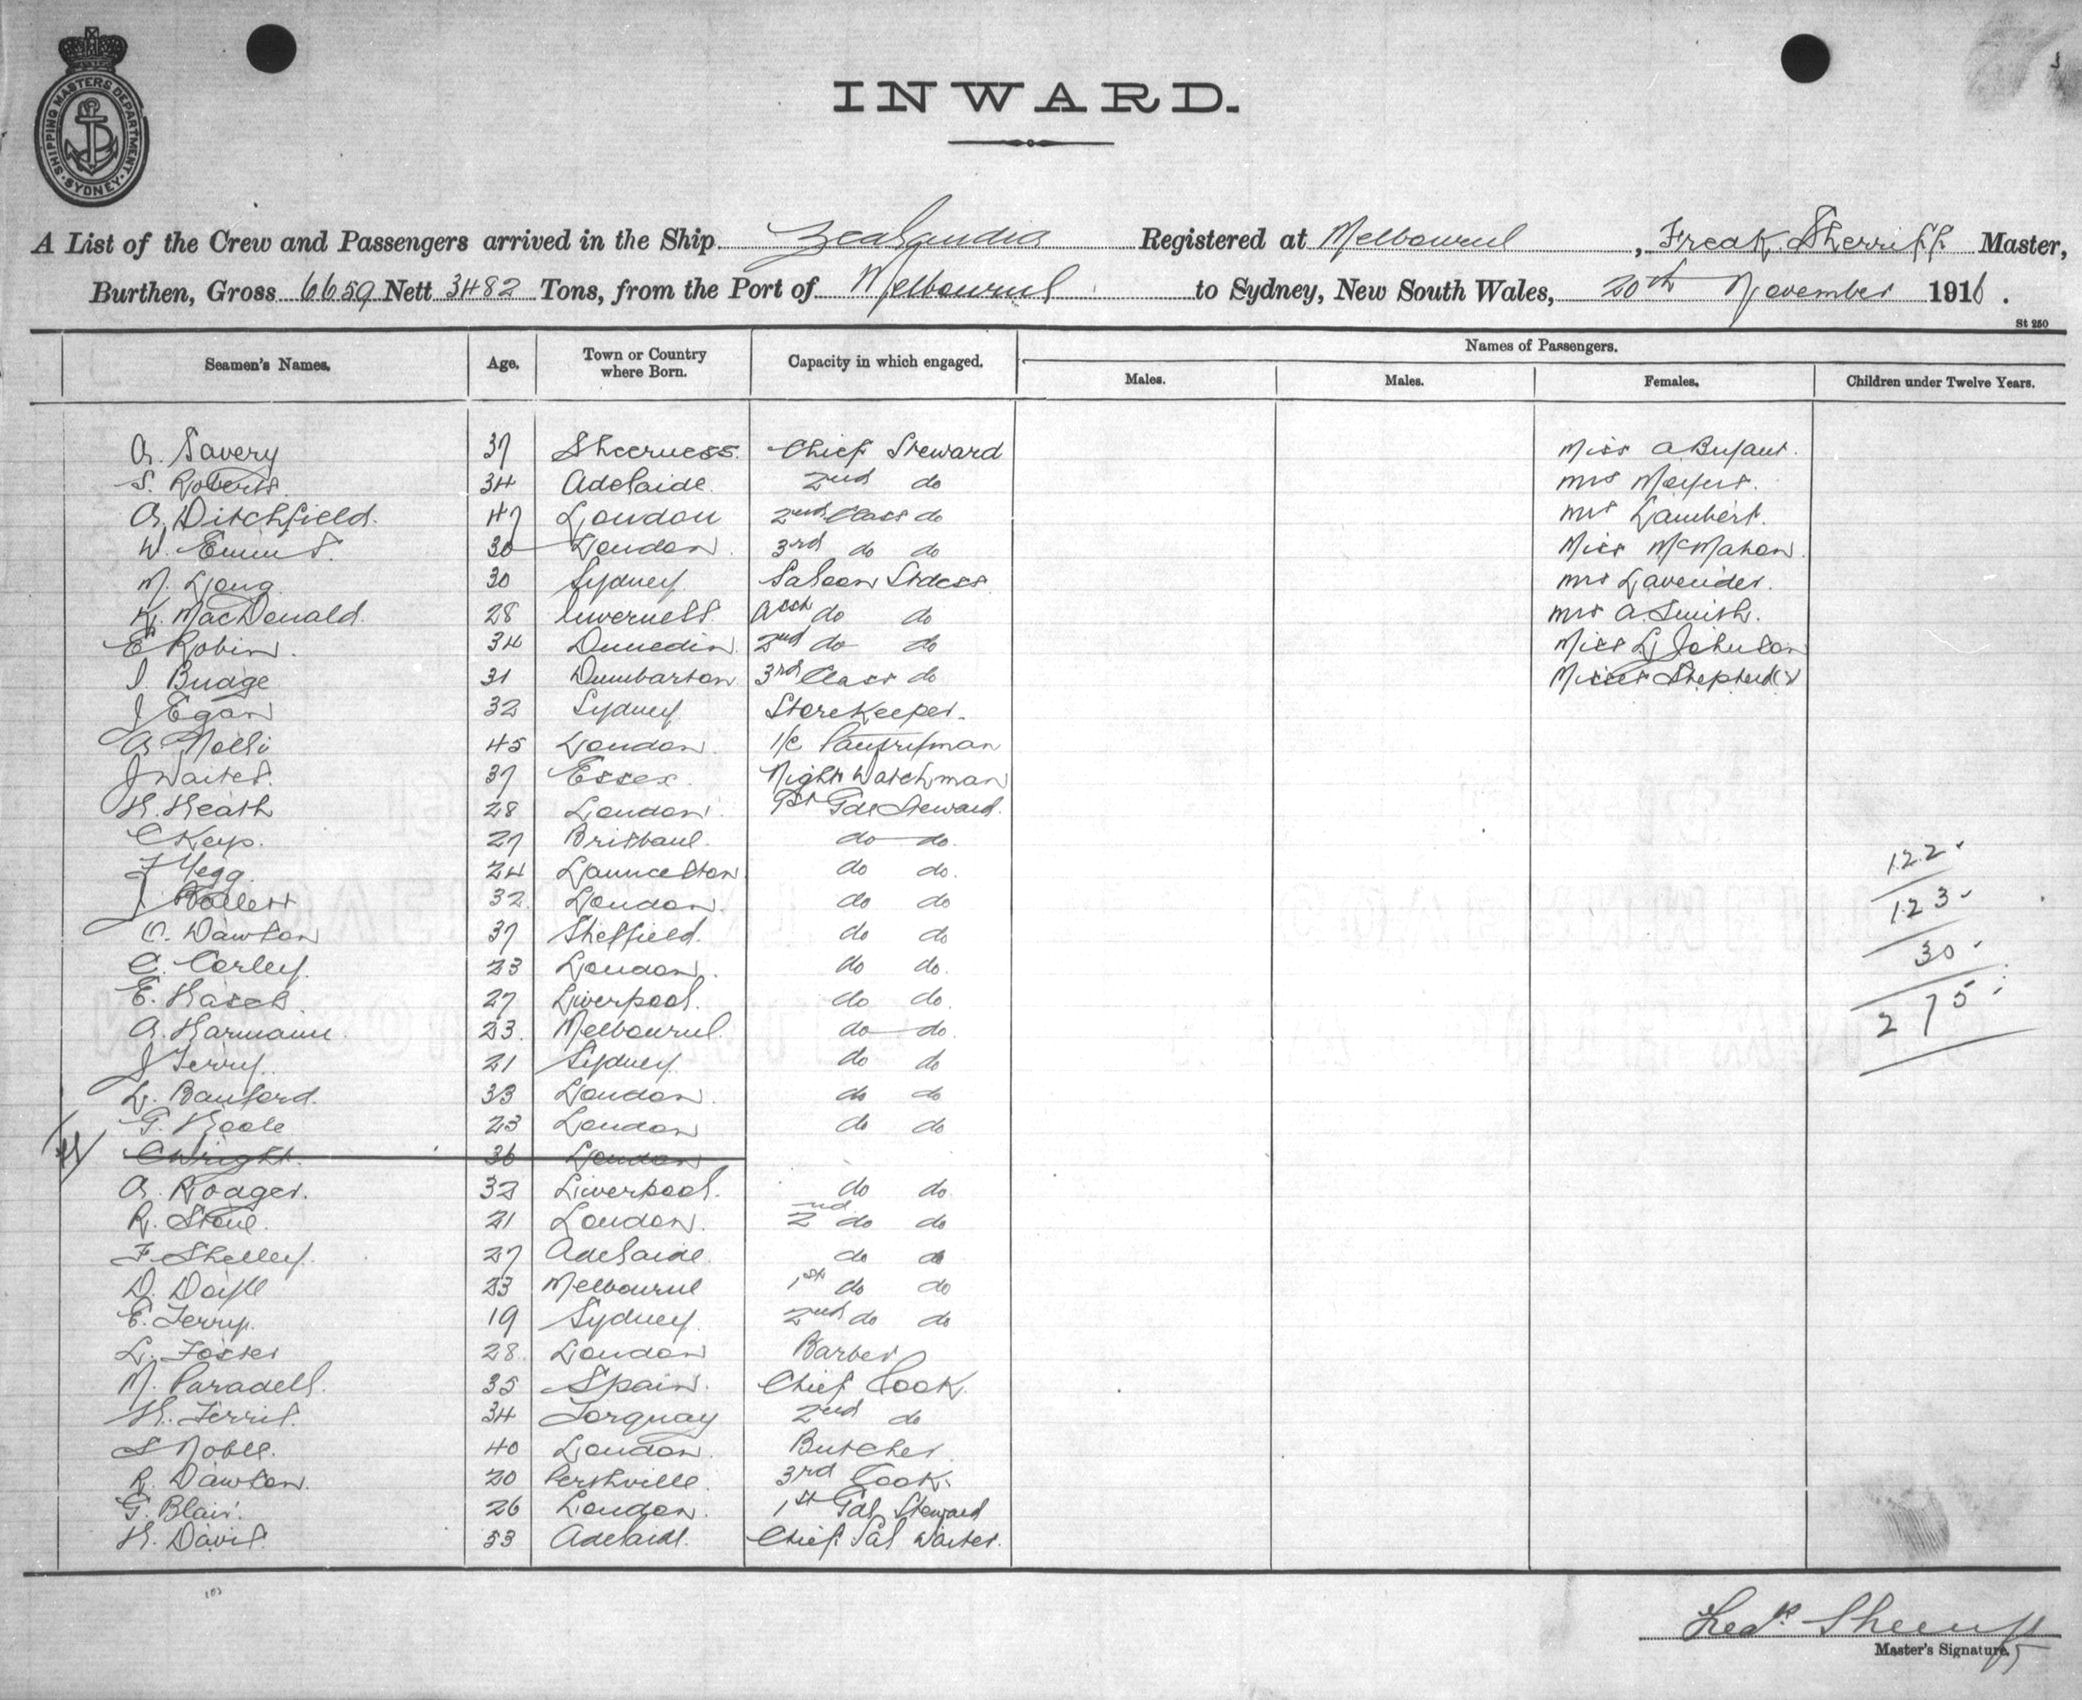 SHIPPING MASTERS DEPARTMENT. SYDNEY
INWARD.
A List of the Crew and Passengers arrived in the Ship Zealandia Registered at Melbourne, Fredk. Sherriff Master,
Burthen, Gross 6659 Nett 3482 Tons, from the Port of Melbourne to Sydney, New South Wales, 20th November 1916.
St 250
Seamen's Names. Age. Town or Country where Born. Capacity in which engaged. Names of Passengers.
Males. Males. Females. Children under Twelve Years.
A. Savery 37 Sheerness. Chief Steward Miss A Bryant.
S. Roberts. 34 Adelaide. 2nd do Mrs Meyers.
A. Ditchfield. 47 London 2nd Class do Mrs Lambert.
W. 30 London. 3rd do do Miss McMahon.
M. Long 30 Sydney Saloon Stdess Mrs Lavender.
K. MacDonald. 28 Inverness. Asst do do Mrs A. Smith.
E Robin. 34 Dunedin. 2nd do do Miss L Johnson
J Budge 31 Dumbarton 3rd Class do Misses Shepherd (2)
J Egan 32 Sydney StoreKeeper.
A. 45 London. 1/c Pantryman
J Waites. 37 Essex. Night Watchman
H. Heath 28 London. 1st Gde Steward.
C Keys. 27 Brisbane. do do.
F Hegg. 24 Launceston. do do.
J 32. London. do do
C. Dawson 37 Sheffield. do do
C. Corley. 23 London. do do.
E. 27 Liverpool. do do.
A. Harmann. 23. Melbourne. do do.
J Terry. 21 Sydney. do do
L. Banford. 33 London. do do
G. Hoole 23 London do do
C Wright. 36 London
A. Rodger. 32 Liverpool. do do
R. Stone. 21 London. 2nd do do
F. Shelley. 27 Adelaide. do do
D. Doyle 23 Melbourne 1st do do
E. Terry. 19 Sydney. 2nd do do
L. Foster 28. London Barber
M. Paradell. 35 Spain. Chief Cook.
H. Ferris. 34 Torquay 2nd do
S Noble. 40 London. Butcher
R. Dawson. 20 Perthville. 3rd Cook.
G. Blair. 26 London. 1st Gde Steward
H. Davis. 53 Adelaide. Chief Sal Waiter.
122.
123.
30.
275
103
Fredk Sherriff
Master's Signature.